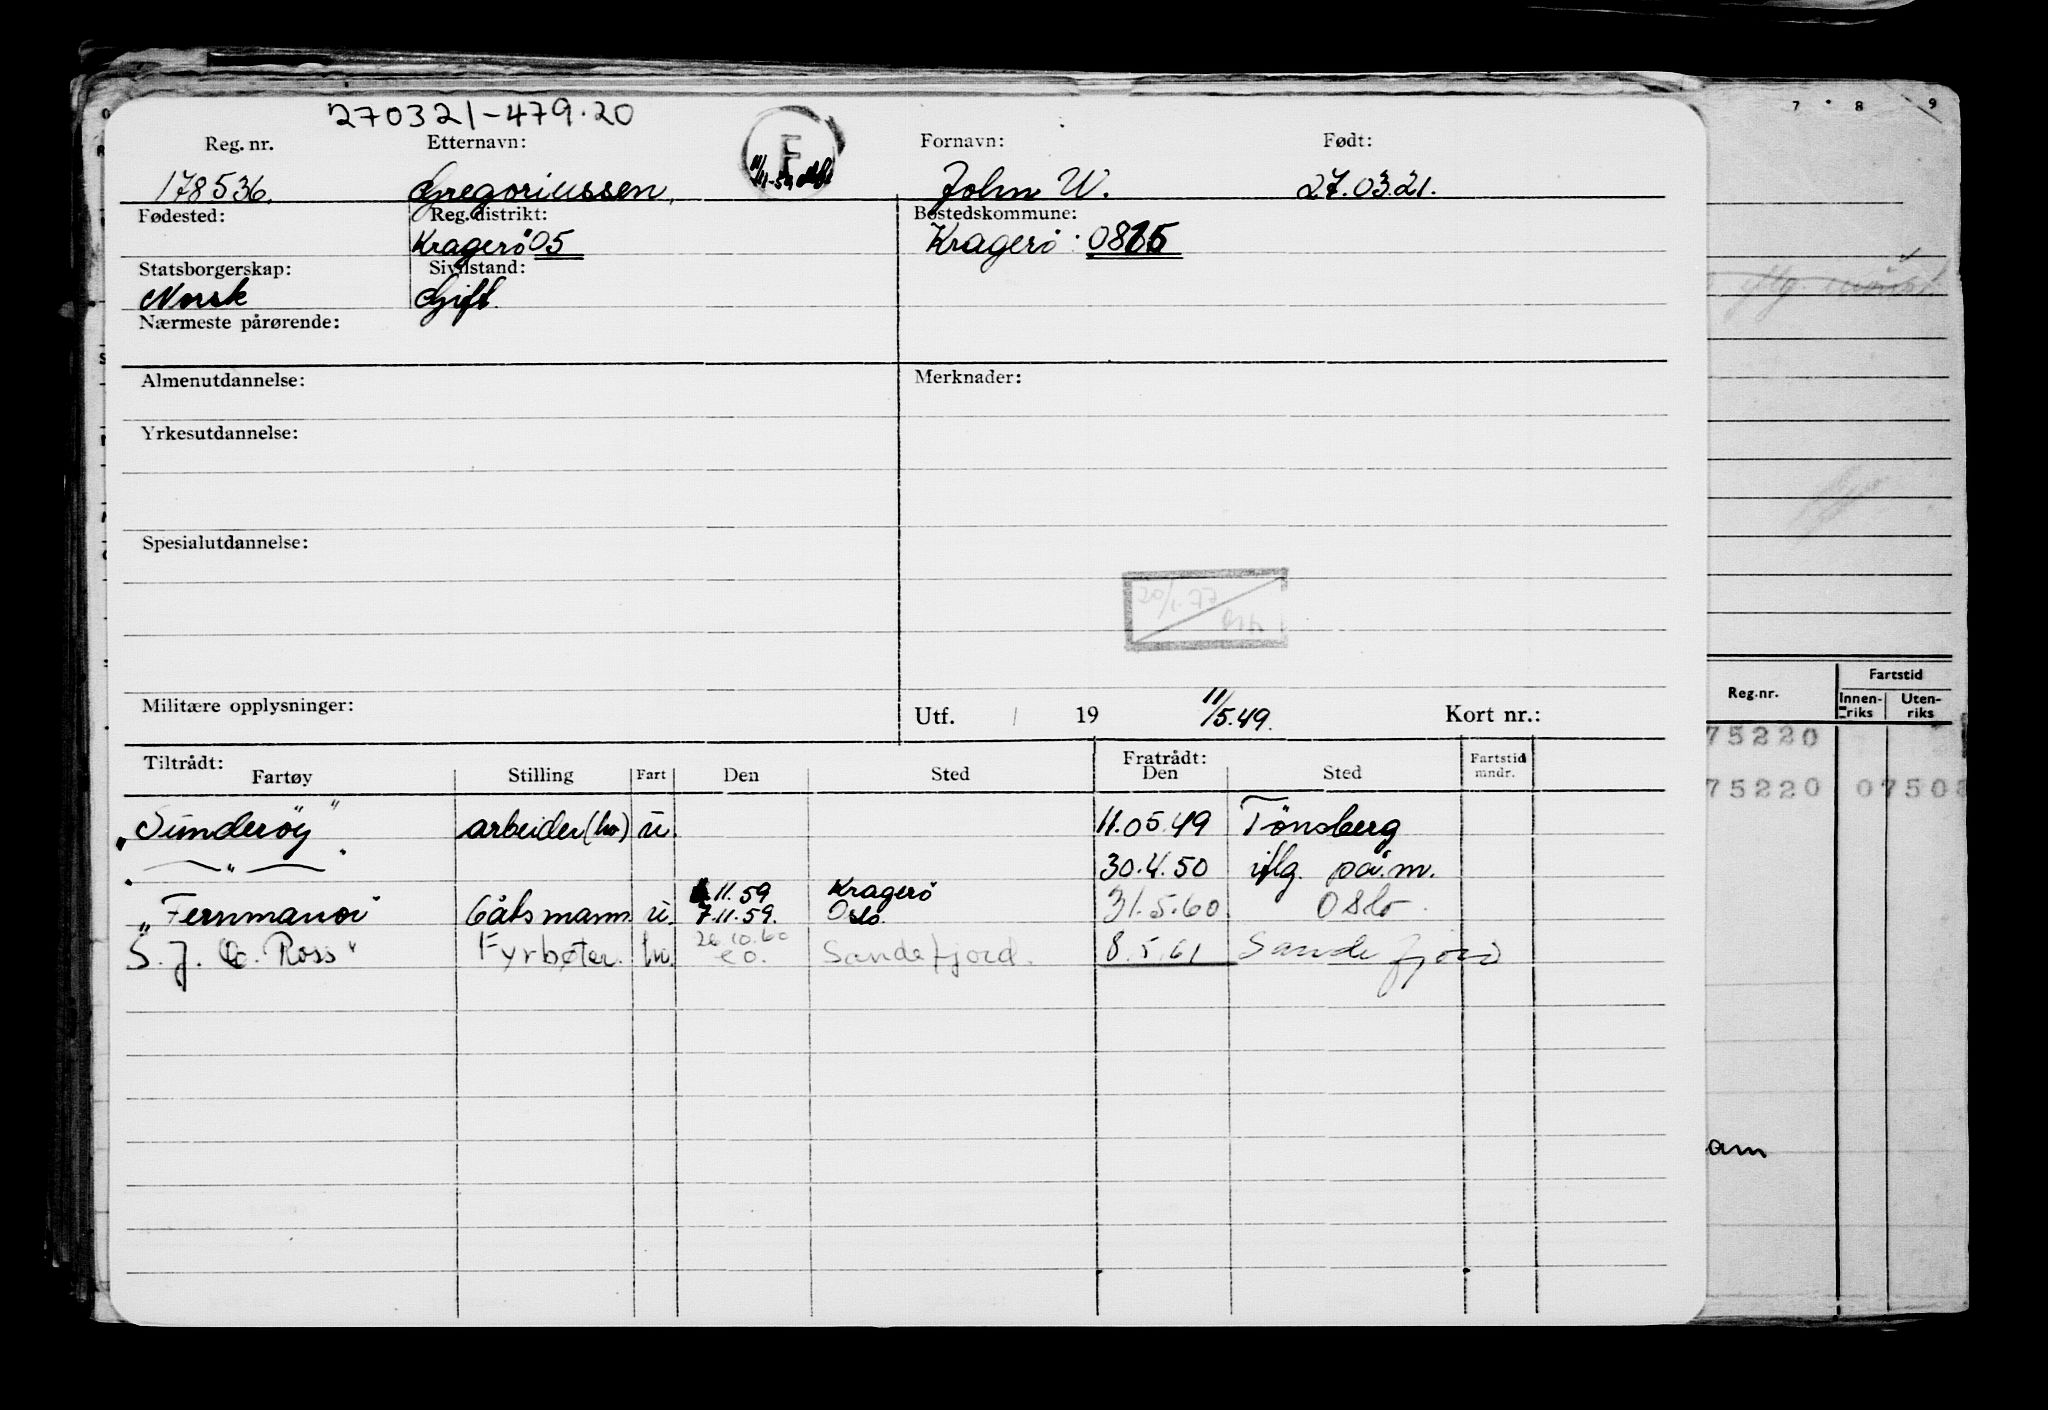 270321-479.20
Reg. nr. Etternavn: Fornavn: Født:
178536. Gregoriussen, John W. 27.03.21.
Fødested: Reg. distrikt: Bostedskommune:
Kragerö 05 Kragerö 0815
Statsborgerskap: Sivilstand:
Norsk Gift.
Nærmeste pårørende:
Almenutdannelse: Merknader:
Yrkesutdannelse:
Spesialutdannelse:
20/1.77
Militære opplysninger: Utf. / 19 11/5.49. Kort nr.:
Tiltrådt: Fratrådt: Fartstid
Fartøy Stilling Fart Den Sted Den Sted mndr.
„Sunderöy" arbeider (ho) u. 11.05.49 Tönsberg
— " — 30.4.50 iflg. på.m.
.11.59 Kragerö
„Fernmanor" båtsmann. u. 7.11.59. Oslo. 31.5.60 Oslo.
26.10.60
S. J. C. Ross" Fyrbøter. ho. eo. Sandefjord. 8.5.61 Sandefjord
7 8 9
Reg.nr. Fartstid
Innen-riks Uten-riks
75220
75220 0750
am